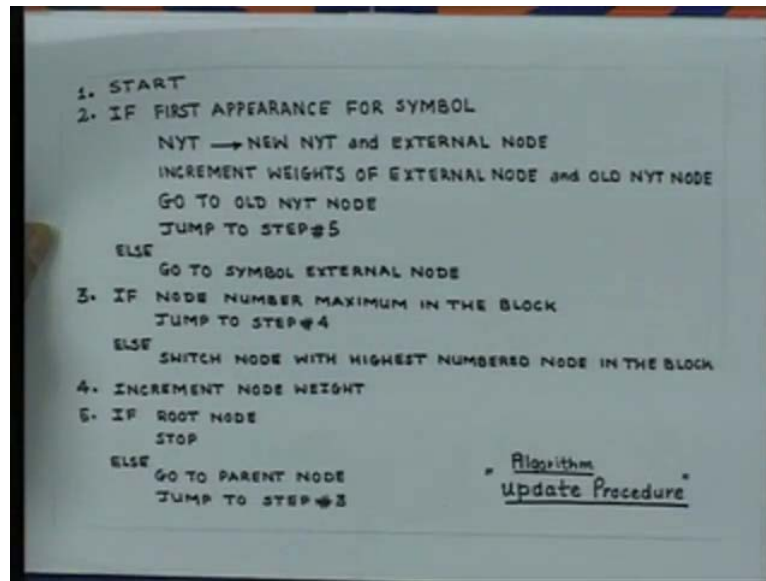 1. START
2. IF FIRST APPEARANCE FOR SYMBOL
NYT → NEW NYT and EXTERNAL NODE
INCREMENT WEIGHTS OF EXTERNAL NODE and OLD NYT NODE
GO TO OLD NYT NODE
JUMP TO STEP#5
ELSE
GO TO SYMBOL EXTERNAL NODE
3. IF NODE NUMBER MAXIMUM IN THE BLOCK
JUMP TO STEP#4
ELSE
SWITCH NODE WITH HIGHEST NUMBERED NODE IN THE BLOCK
4. INCREMENT NODE WEIGHT
5. IF ROOT NODE
STOP
ELSE
GO TO PARENT NODE
JUMP TO STEP#3
"Algorithm
Update Procedure"